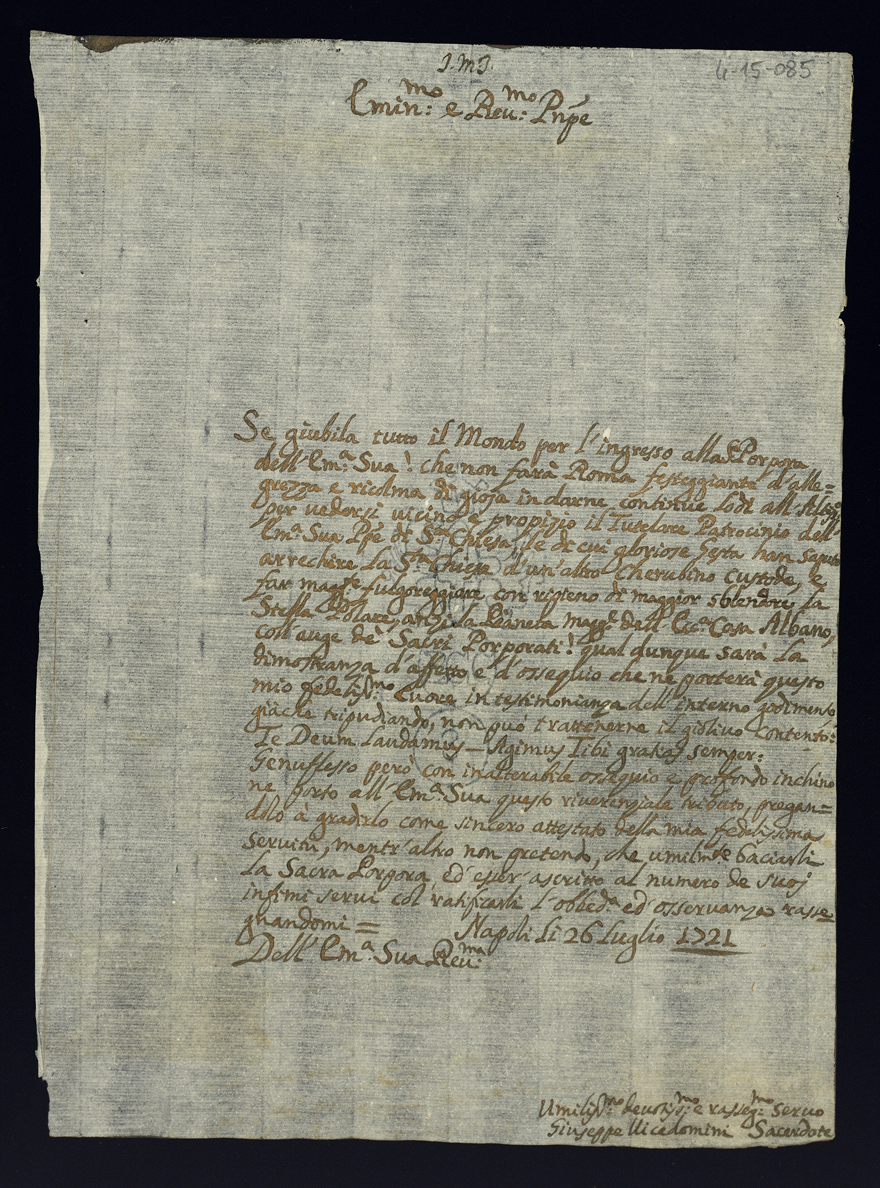 J.M.J.
4-15-085
Emin:mo e Reu:mo Pnpe
Se giubila tutto il Mondo per l'ingresso alla Porpora
dell'Em:a Sua! che non farà Roma festeggiante d'alle=
grezza e ricolma di gioja in darne continue Lodi all'Altis:
per vedersi vicino e propizio il Tutelare Patrocinio dell'
Em:a Sua Ppe di S:ta Chiesa, le di cui gloriose Gesta han saputo
arrechire La S:ta Chiesa d'un'altro Cherubino Custode, e
far magte fulgoreggiare con ripieno di maggior sblendore, La
Stella Polare, anzi La Pianeta magg:e dell'Ecc:a Casa Albano,
coll'auge de Sacri Porporati! qual dunque sarà La
dimostranza d'affetto e d'ossequio che ne porterà questo
mio fedeliss:mo Cuore in testimonianza dell'interno godimento
giache tripudiando, non può trattenerne il giolivo Contento:
Te Deum Laudamus — Agimus Tibi gratias semper:
Genuflesso però con inalterabile ossequio e profondo inchino
ne porto all'Em:a Sua questo riverenziale tributo, pregan=
dolo à gradirlo come sincero attestato della mia fedelissima
Servitù, mentr'altro non pretendo, che umilmte baciarli
La Sacra Porpora, ed'esser ascritto al numero de suoj
infimi servi col ratificarli L'obbed:a ed'osservanza rasse
gnandomi = Napoli Li 26 Luglio 1721
Dell'Em:a Sua Reu:ma
Umiliss:mo devotiss:mo e rasseg:mo Seruo
Giuseppe Vicedomini Sacerdote